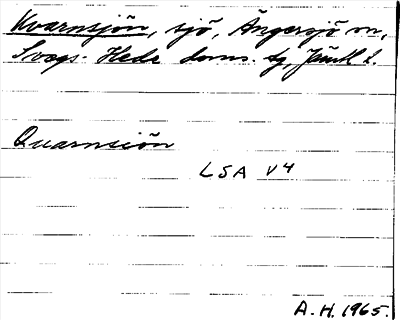 Kvarnsjön, sjö, Ängersjö sn,
Svegs-Hede doms. tg, Jämtl. l.
Quarnsiön
LSA V4
A.H. 1965.